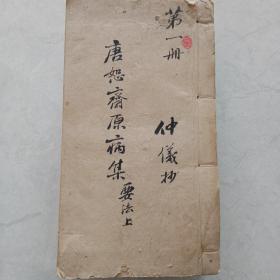 第一册
仲儀抄
唐恕齋原病集
要法上